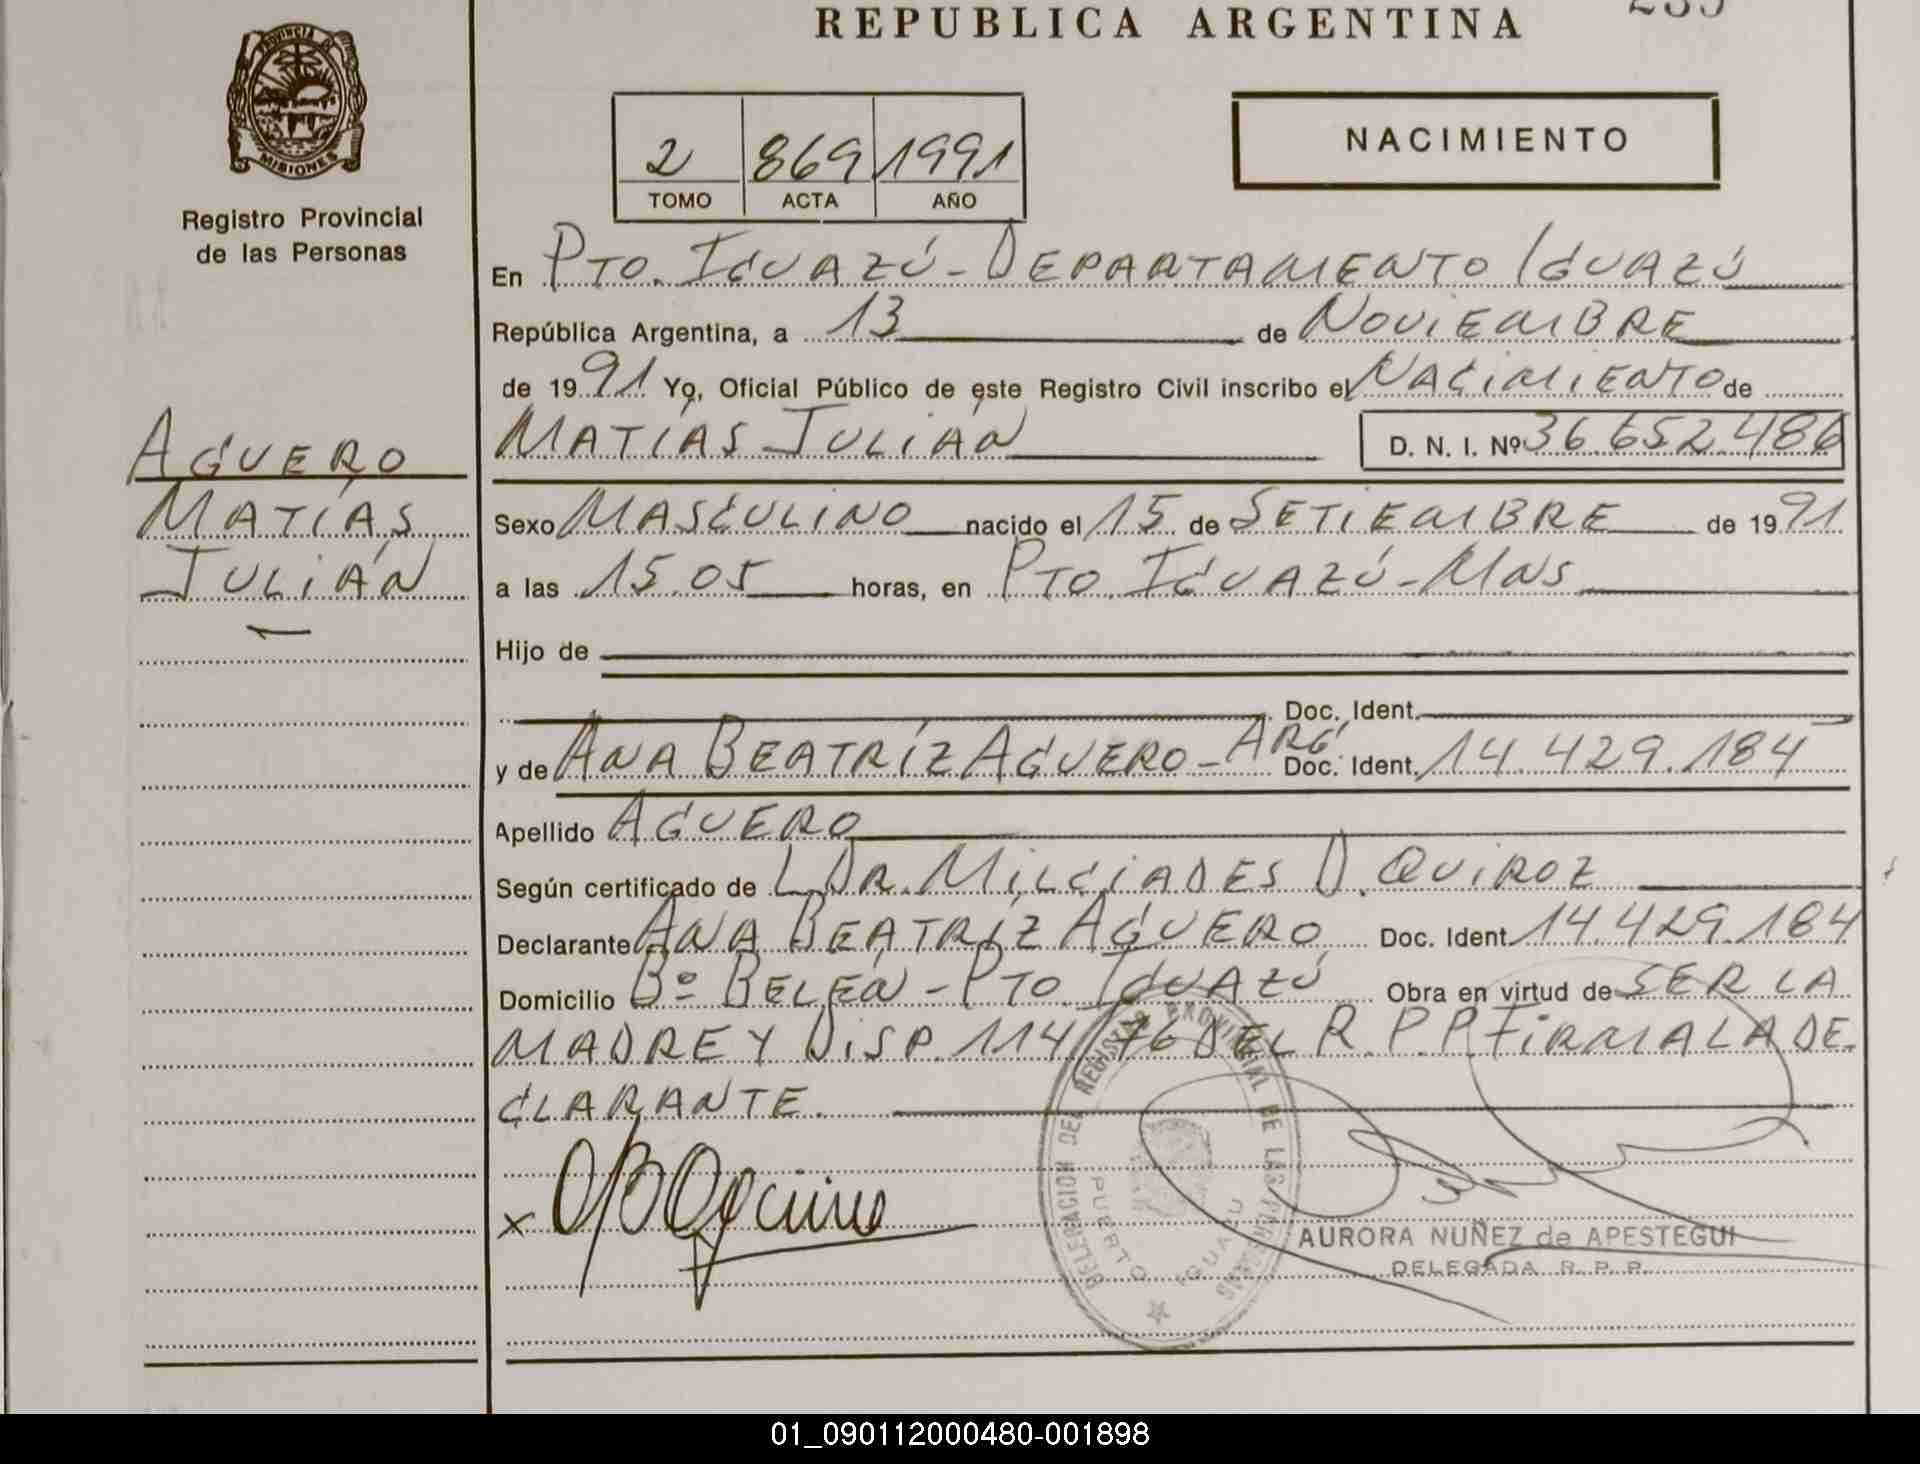 REPUBLICA ARGENTINA
PROVINCIA DE
MISIONES
Registro Provincial
de las Personas
2 869 1991
TOMO ACTA AÑO
NACIMIENTO
En PTO. IGUAZÚ - DEPARTAMENTO IGUAZÚ
República Argentina, a 13 de NOVIEMBRE
de 1991 Yo, Oficial Público de este Registro Civil inscribo el NACIMIENTO de
MATÍAS JULIÁN D. N. I. Nº 36.652.486
AGUERO
MATÍAS
JULIÁN
Sexo MASCULINO nacido el 15 de SETIEMBRE de 1991
a las 15.05 horas, en PTO. IGUAZÚ - MNS
Hijo de
Doc. Ident.
y de ANA BEATRÍZ AGUERO - ARG. Doc. Ident. 14.429.184
Apellido AGUERO
Según certificado de L DR. MILCIADES D. QUIROZ
Declarante ANA BEATRÍZ AGUERO Doc. Ident. 14.429.184
Domicilio Bº BELÉN - PTO. IGUAZÚ Obra en virtud de SER LA
MADRE Y DISP. 114/76 DEL R. P. P. FIRMA LA DE-
CLARANTE.
DELEGACION DEL REGISTRO PROVINCIAL DE LAS PERSONAS
PUERTO IGUAZU
x
AURORA NUÑEZ de APESTEGUI
DELEGADA R. P. P.
01_090112000480-001898